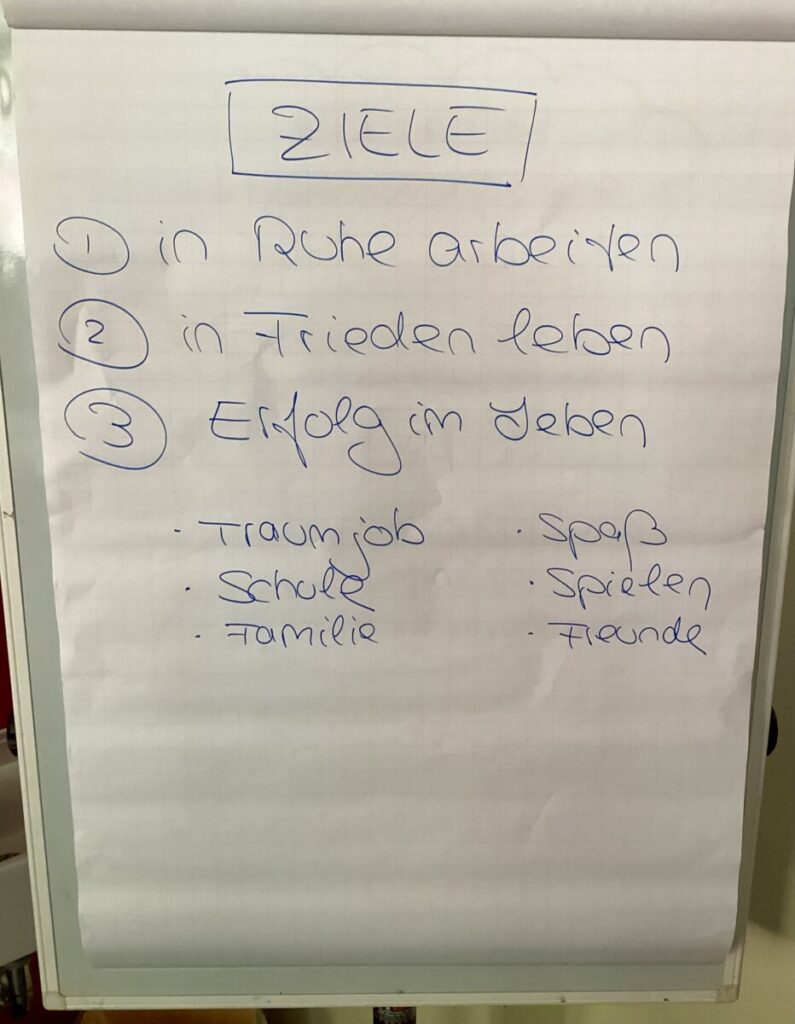 ZIELE
1 in Ruhe arbeiten
2 in Frieden leben
3 Erfolg im Leben
· Traumjob · Spaß
· Schule · Spielen
· Familie · Freunde